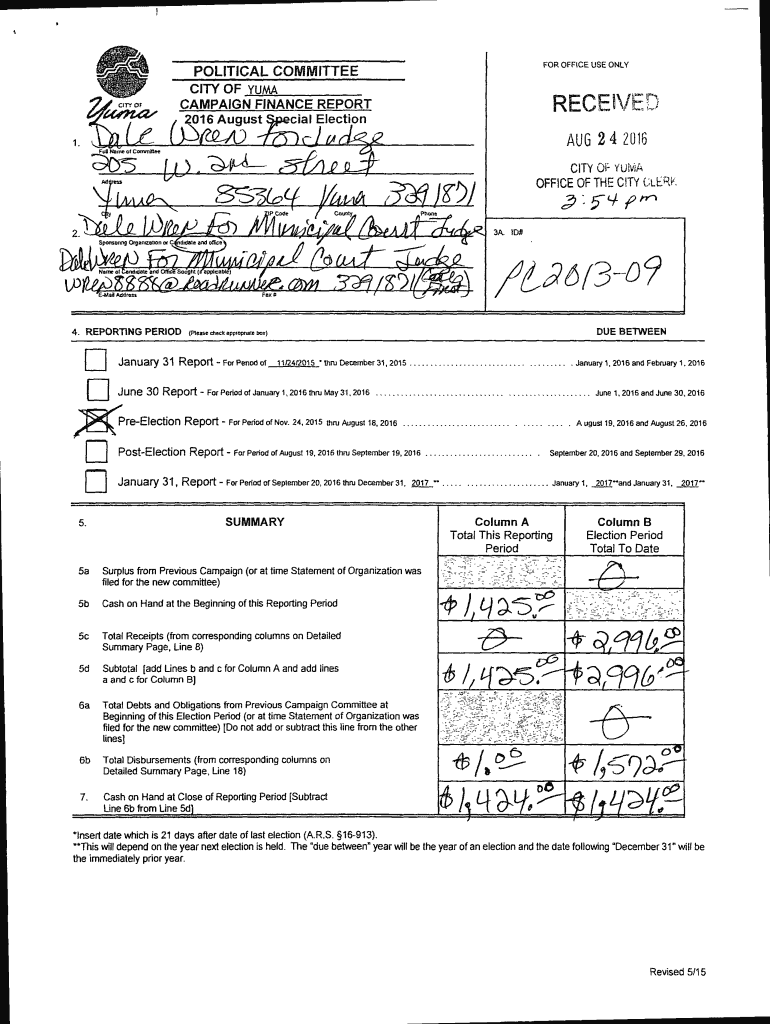 POLITICAL COMMITTEE
CITY OF YUMA
CAMPAIGN FINANCE REPORT
2016 August Special Election
CITY OF
Yuma
FOR OFFICE USE ONLY
RECEIVED
AUG 24 2016
CITY OF YUMA
OFFICE OF THE CITY CLERK
3:54 pm
1. Dale Wren for Judge
Full Name of Committee
205 W. 2nd Street
Address
Yuma 85364 Yuma 3291871
City ZIP Code County Phone
2. Dale Wren For Municipal Court Judge
Sponsoring Organization or Candidate and office
Dale Wren For Municipal Court Judge
Name of Candidate and Office Sought (if applicable)
wren8888@roadrunner.com 3291871
E-Mail Address Fax #
3A. ID#
PC2013-09
4. REPORTING PERIOD (Please check appropriate box) DUE BETWEEN
January 31 Report - For Period of 11/24/2015 * thru December 31, 2015 January 1, 2016 and February 1, 2016
June 30 Report - For Period of January 1, 2016 thru May 31, 2016 June 1, 2016 and June 30, 2016
Pre-Election Report - For Period of Nov. 24, 2015 thru August 18, 2016 August 19, 2016 and August 26, 2016
Post-Election Report - For Period of August 19, 2016 thru September 19, 2016 September 20, 2016 and September 29, 2016
January 31, Report - For Period of September 20, 2016 thru December 31, 2017 ** January 1, 2017**and January 31, 2017**
5. SUMMARY Column A Total This Reporting Period Column B Election Period Total To Date
5a Surplus from Previous Campaign (or at time Statement of Organization was
filed for the new committee) 0
5b Cash on Hand at the Beginning of this Reporting Period $1,425.00
5c Total Receipts (from corresponding columns on Detailed
Summary Page, Line 8) 0 $2,996.00
5d Subtotal [add Lines b and c for Column A and add lines
a and c for Column B] $1,425.00 $2,996.00
6a Total Debts and Obligations from Previous Campaign Committee at
Beginning of this Election Period (or at time Statement of Organization was
filed for the new committee) [Do not add or subtract this line from the other
lines] 0
6b Total Disbursements (from corresponding columns on
Detailed Summary Page, Line 18) $1.00 $1,572.00
7. Cash on Hand at Close of Reporting Period [Subtract
Line 6b from Line 5d] $1,424.00 $1,424.00
*Insert date which is 21 days after date of last election (A.R.S. §16-913).
**This will depend on the year next election is held. The "due between" year will be the year of an election and the date following "December 31" will be
the immediately prior year.
Revised 5/15